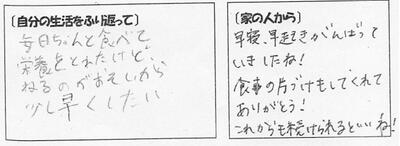 〔自分の生活をふり返って〕
毎日ちゃんと食べて
栄養をとれたけど、
ねるのがおそいから
少し早くしたい
〔家の人から〕
早寝、早起きがんばって
いましたね!
食事の片づけもしてくれて
ありがとう!
これからも続けられるといいね!